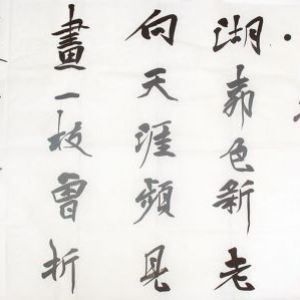 湖春色新老
向天涯頻見
畫一枝曾折